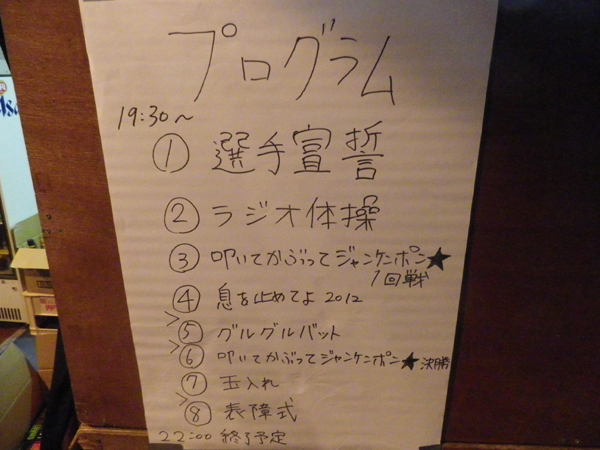 プログラム
19:30〜
① 選手宣誓
② ラジオ体操
③ 叩いてかぶってジャンケンポン★
1回戦
④ 息を止めてよ2012
⑤ グルグルバット
⑥ 叩いてかぶってジャンケンポン★決勝
⑦ 玉入れ
⑧ 表障式
22:00 終了予定